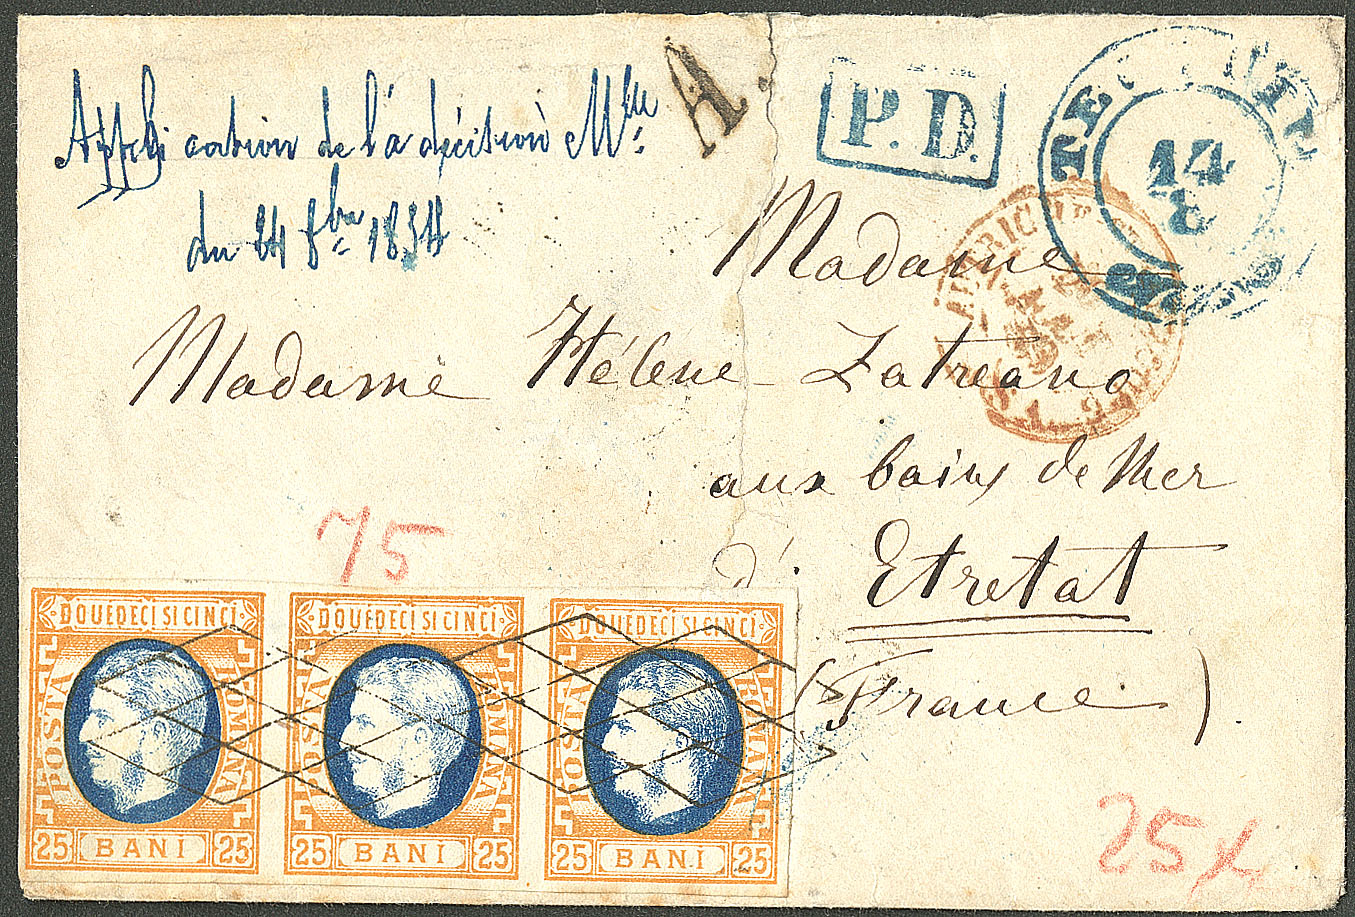 A.
P.D.
14
8
de la décision
du 24
Madame
Madame Hélène Zatreano
aux bains de Mer
d'Etretat
(France)
75
25
DOUEDECI SI CINCI
POSTA ROMANA
25 BANI 25
DOUEDECI SI CINCI
POSTA ROMANA
25 BANI 25
DOUEDECI SI CINCI
POSTA ROMANA
25 BANI 25